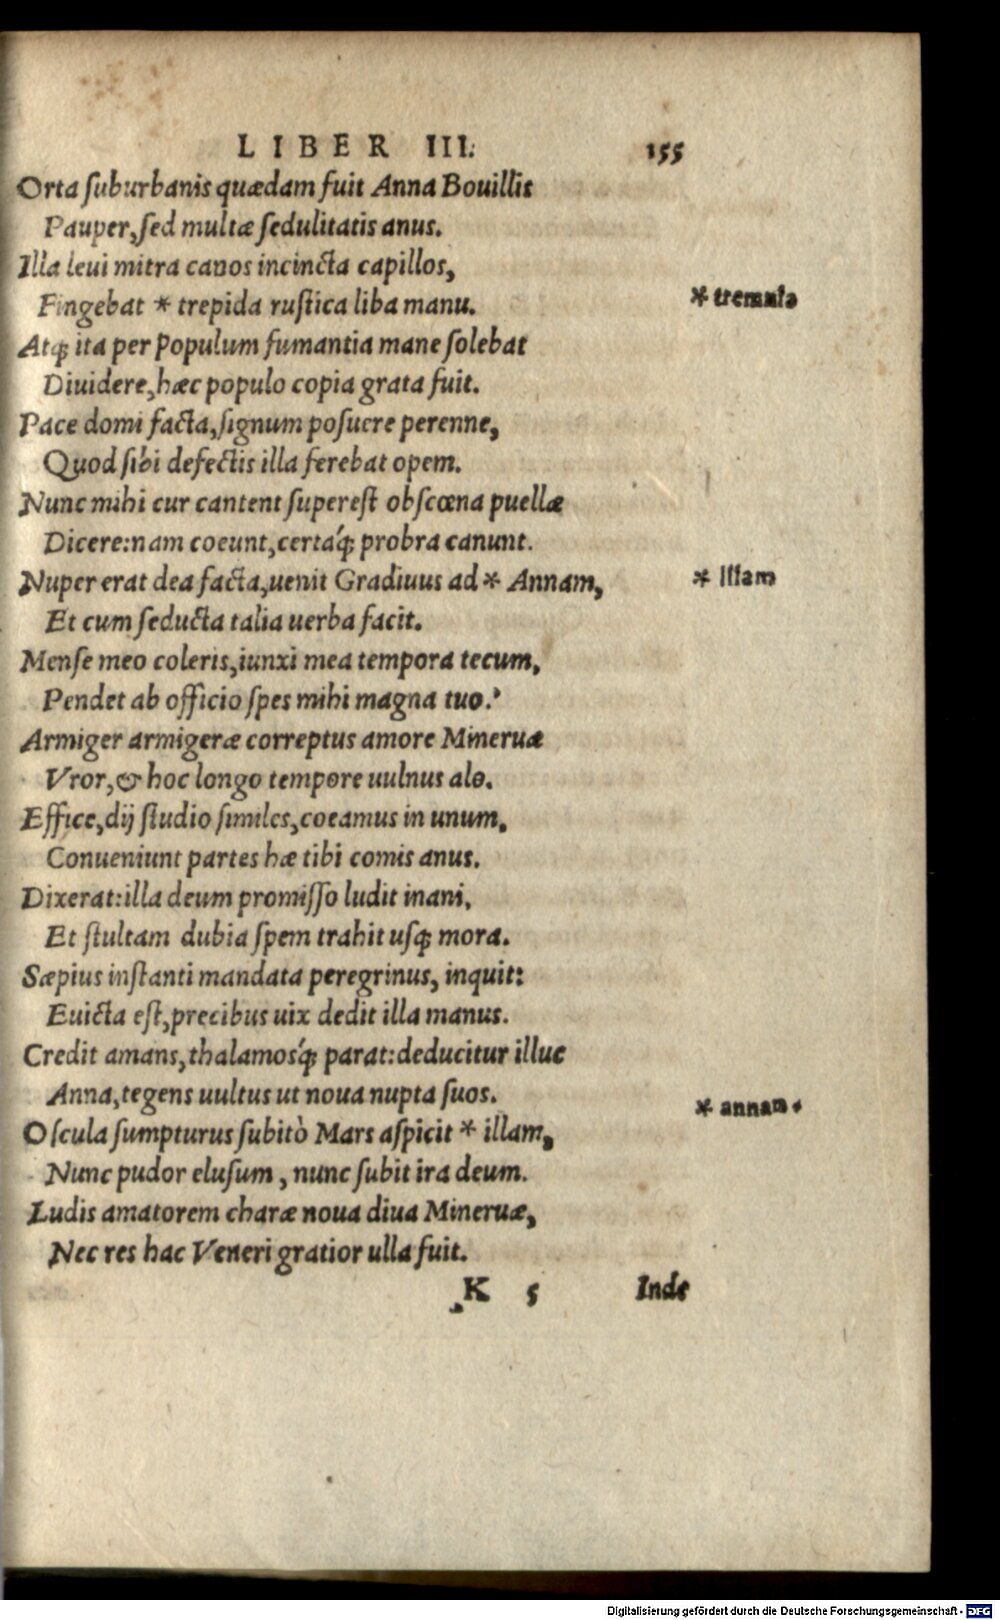 LIBER III. 155
Orta ſuburbanis quædam fuit Anna Bouillis
Pauper, ſed multæ ſedulitatis anus.
Illa leui mitra canos incincta capillos,
Fingebat * trepida ruſtica liba manu. * tremula
Atq; ita per Populum fumantia mane ſolebat
Diuidere, hæc populo copia grata fuit.
Pace domi facta, ſignum poſuere perenne,
Quod ſibi defectis illa ferebat opem.
Nunc mihi cur cantent ſupereſt obſcœna puellæ
Dicere: nam coeunt, certáq; probra canunt.
Nuper erat dea facta, uenit Gradiuus ad * Annam, * Illam
Et cum ſeducta talia uerba facit.
Menſe meo coleris, iunxi mea tempora tecum,
Pendet ab officio ſpes mihi magna tuo.
Armiger armigeræ correptus amore Mineruæ
Vror, & hoc longo tempore uulnus alo.
Effice, dij ſtudio ſimiles, coeamus in unum,
Conueniunt partes hæ tibi comis anus.
Dixerat: illa deum promiſſo ludit inani,
Et ſtultam dubia ſpem trahit uſq; mora.
Sæpius inſtanti mandata peregrinus, inquit:
Euicta eſt, precibus uix dedit illa manus.
Credit amans, thalamosq́; parat: deducitur illuc
Anna, tegens uultus ut noua nupta ſuos.
Oſcula ſumpturus ſubitò Mars aſpicit * illam, * annam.
Nunc pudor eluſum, nunc ſubit ira deum.
Ludis amatorem charæ noua diua Mineruæ,
Nec res hac Veneri gratior ulla fuit.
K 5 Inde
Digitalisierung gefördert durch die Deutsche Forschungsgemeinschaft - DFG